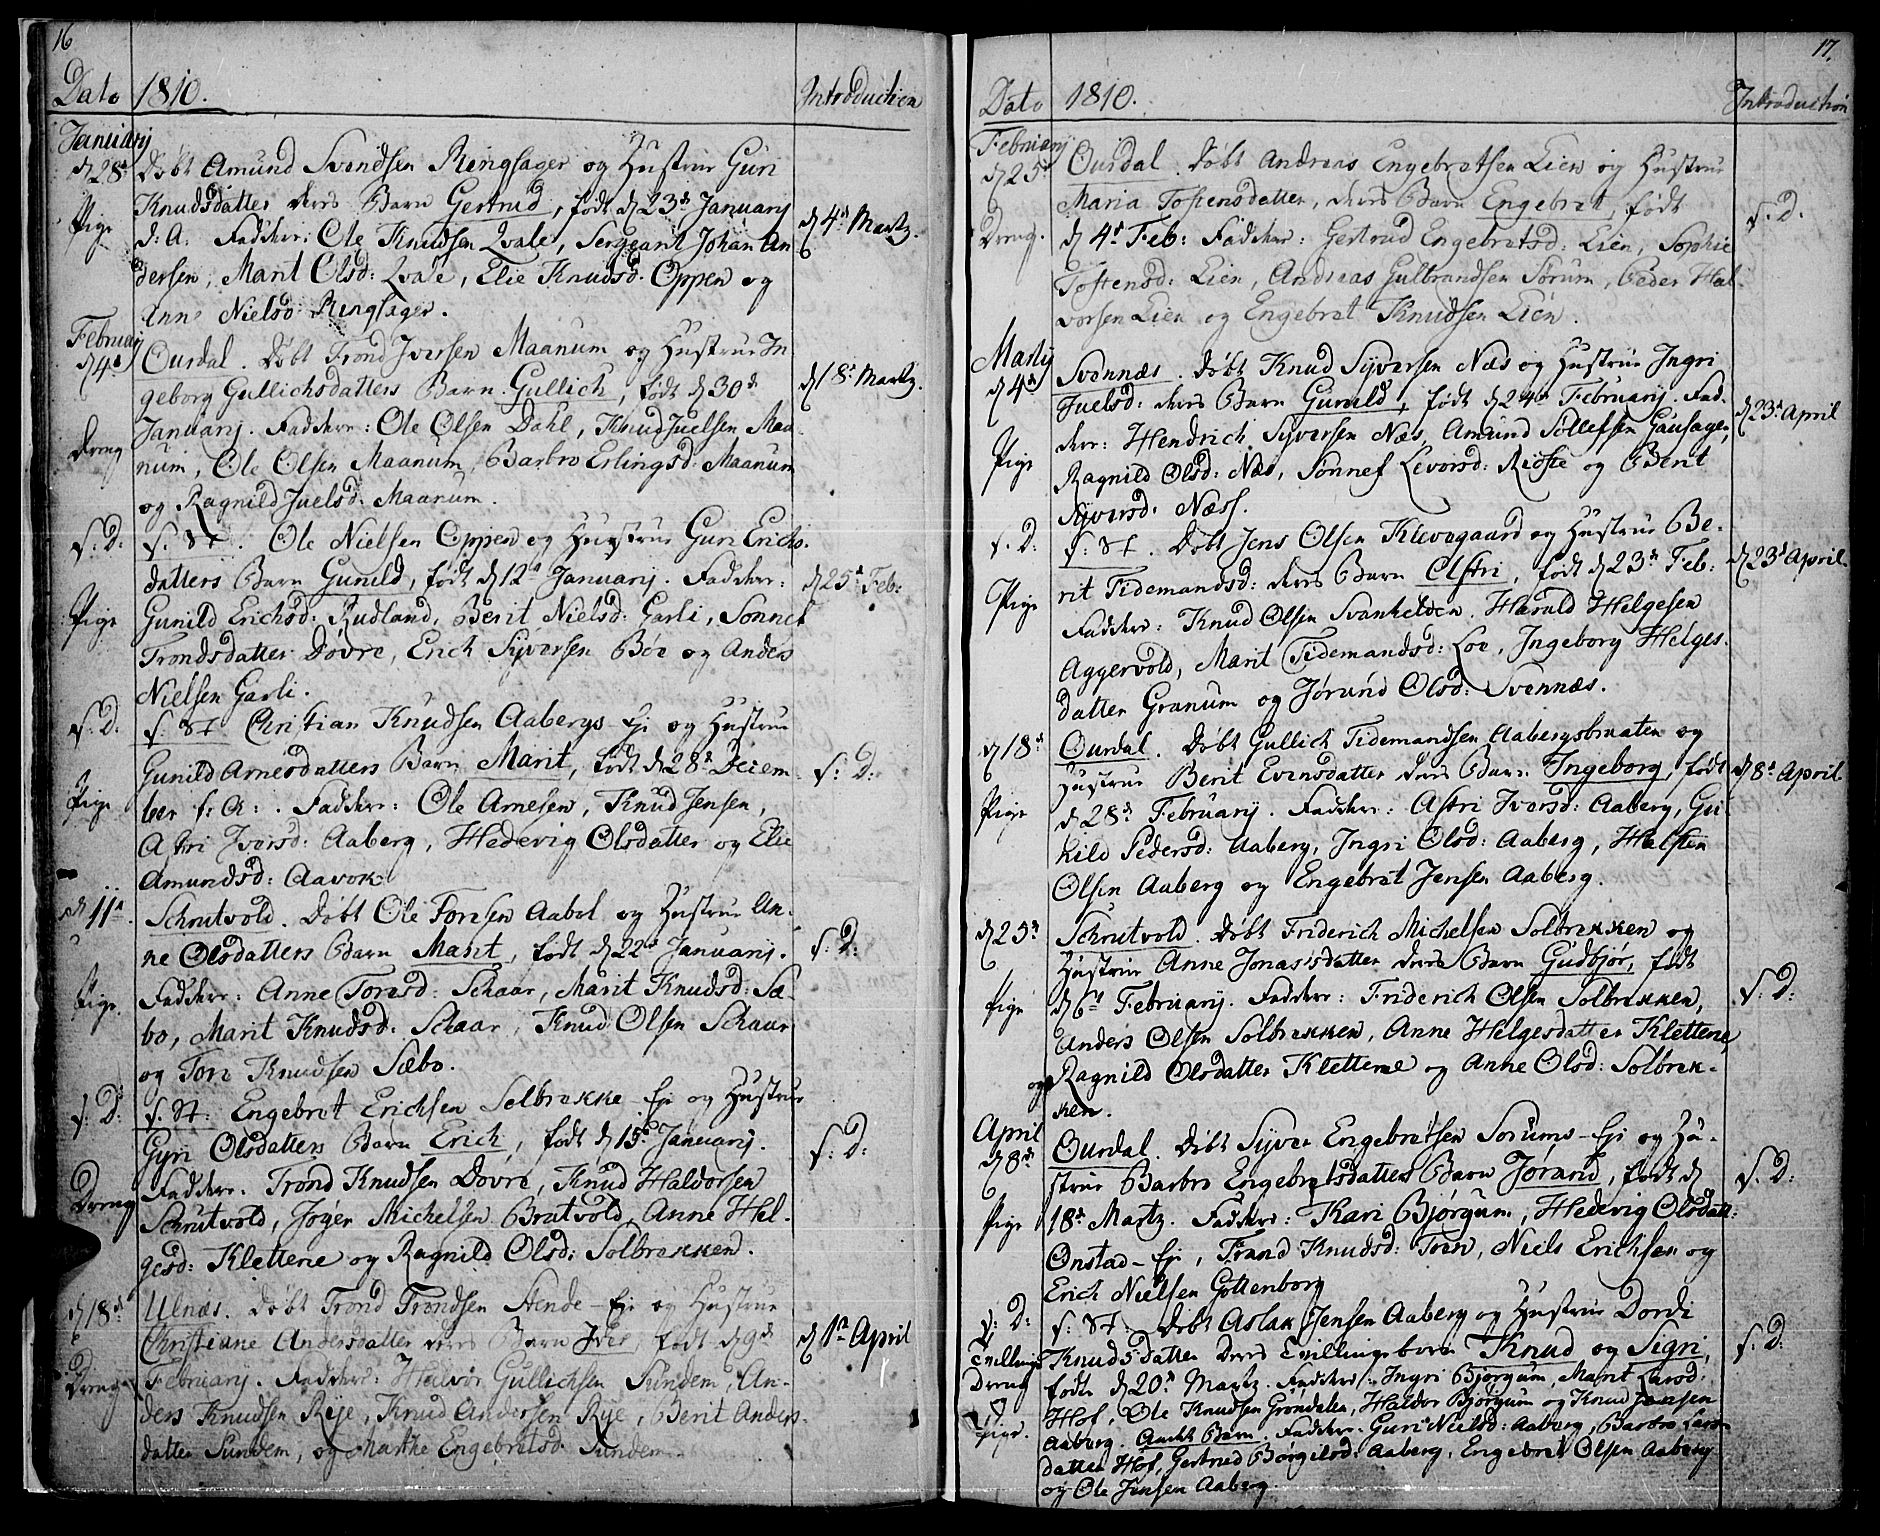 16
Dato 1810. Introduction
January
d 28de Døbt Amund Svendsen Ringsager og Hustrue Guri
Knudsdatter deres Barn Gertrud, født d 23de Januarij
Pige d: A. Fadder: Ole Knudsen Qvale, Sergeant Johan An- d 4de Martz.
dersen, Marit Olsd: Qvale, Elie Knudsd: Oppen og
Anne Nielsd Ringsager.
Februarij
d 4de Ourdal. Døbt Trond Iversen Maanum og Hustrue In-
geborg Gullichsdatters Barn Gullich, født d 30de d 18de Martz.
Januarij. Fadder: Ole Olsen Dahl, Knud Juelsen Maa-
Dreng num, Ole Olsen Maanum, Barbro Erlingsd: Maanum
og Ragnild Juelsd: Maanum.
s: D: s: St. Ole Nielsen Oppen og Hustrue Guri Erichs-
datters Barn Gunild, født d 12te Januarij. Fadder: d 25de Feb:
Pige Gunild Erichsd: Rudland, Berit Nielsd: Garli, Sønnef
Trondsdatter Dovre, Erich Syversen Bøe og Anders
Nielsen Garli.
s. D. s. St Christian Knudsen Aabergs-Eje og Hustrue
Gunild Arnesdatters Barn Marit, født d 28de Decem-
Pige ber f: A: . Fadder: Ole Arnesen, Knud Jensen, s: D:
Astri Iversd: Aaberg, Hedevig Olsdatter og Elie
Amundsd: Aavok
d 11te Schrutvold. Døbt Ole Toresen Aabol og Hustrue An-
ne Olsdatters Barn Marit, født d 22de Januarij. s: D:
Pige. Fadder: Anne Toresd: Schaar, Marit Knudsd: Sæ-
bo, Marit Knudsd: Schaar, Knud Olsen Schaar
og Tore Knudsen Sæbo.
s: D: s. St: Engebret Erichsen Solbrække-Eje og Hustrue
Gyri Olsdatters Barn Erich, født d 15de Januarij. s: D:
Fadder. Trond Knudsen Dovre, Knud Haldorsen
Dreng Schrutvold, Jøger Michelsen Bratvold, Anne Hel-
gesd: Klettene og Ragnild Olsd: Solbrækken.
d 18de Ulnæs. Døbt Trond Trondsen Stende-Eje og Hustrue
Christiane Andersdatter deres Barn Iver, født d 9de d 1te April
Dreng Februarij. Fadder: Halvor Gullichsen Sundem, An-
ders Knudsen Rye, Knud Andersen Rye, Berit Anders-
datter Sundem, og Marthe Engebretsd: Sundem.
17.
Dato 1810. Introduction
Februarij
d 25de Ourdal. Døbt Andreas Engebretsen Lien og Hustrue
Maria Tostensdatter, deres Barn Engebret, født s: D.
Dreng. d 4de Feb: Fadder: Gertrud Engebretsd: Lien, Sophie
Tostensd: Lien, Andreas Gulbrandsen Sørum, Peder Hal-
vorsen Lien og Engebret Knudsen Lien.
Martij
d 4de Svennæs. Døbt Knud Syversen Næs og Hustrue Ingri
Juelsd: deres Barn Gunild, født d 24de Februarij. Fad- d 23de April
der: Hendrich Syversen Næs, Amund Sollefsen Gausager,
Pige Ragnild Olsd: Næs, Sønnef Levorsd: Rioste og Berit
Syversd: Næss.
s. D: s: St. Døbt Jens Olsen Klevgaard og Hustrue Be-
rit Tidemandsd: deres Barn Olstri, født d 23de Feb: d 23de April.
Pige Fadder: Knud Olsen Svanhelden, Harald Helgesen
Aggervold, Marit Tidemandsd: Loe, Ingeborg Helges-
datter Granum og Jørund Olsd: Svennæs.
d 18de Ourdal. Døbt Gullich Tidemandsen Aabergsbraaten og
Hustrue Berit Evensdatter deres Barn Ingeborg, født d 8de April
Pige d 28de Februarij. Fadder: Astri Iversd: Aaberg, Gu-
nild Pedersd: Aaberg, Ingri Olsd: Aaberg, Halsten
Olsen Aaberg og Engebret Jensen Aaberg.
d 25de Schrutvold. Døbt Friderich Michelsen Solbrækken og
Hustrue Anne Jonasisdatter deres Barn Gudbjør, født
Pige d 6te Februarij. Fadder: Friderich Olsen Solbrækken, s: D:
Anders Olsen Solbrækken, Anne Helgesdatter Klettene,
og Ragnild Olsdatter Klettene og Anne Olsd: Solbræk-
ken.
April
d 8de Ourdal. Døbt Syver Engebretsen Sørums-Eje og Hu-
strue Barbro Engebretsdatters Barn Jørand, født d s. D:
Pige 18de Martz. Fadder: Kari Bjørgum, Hedevig Olsdatt:
Onstad-Eje, Trand Knudsd: Toen, Niels Erichsen og
Erich Nielsen Gottenborg
s: D: s: St. Døbt Aslak Jensen Aaberg og Hustrue Dordi
Tvillinge Knudsdatter deres Tvillingeborn Knud og Sigri, s: D:
Dreng fødte d 20de Martz. Fadder. Ingri Bjørgum, Marit Larsd:
Hof, Ole Knudsen Grøndalen, Haldor Bjørgum og Knud Jensen
Pige. Aaberg. Andet Barn. Fadder. Guri Nielsd: Aaberg, Barbro Lars-
datter Hof, Gertrud Børgilsd: Aaberg, Engebret Olsen Aaberg
og Ole Jensen Aaberg.